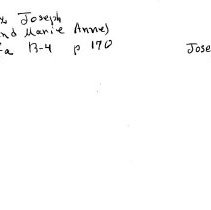 Joseph
and Marie Anne)
B-4 p 170
Jose